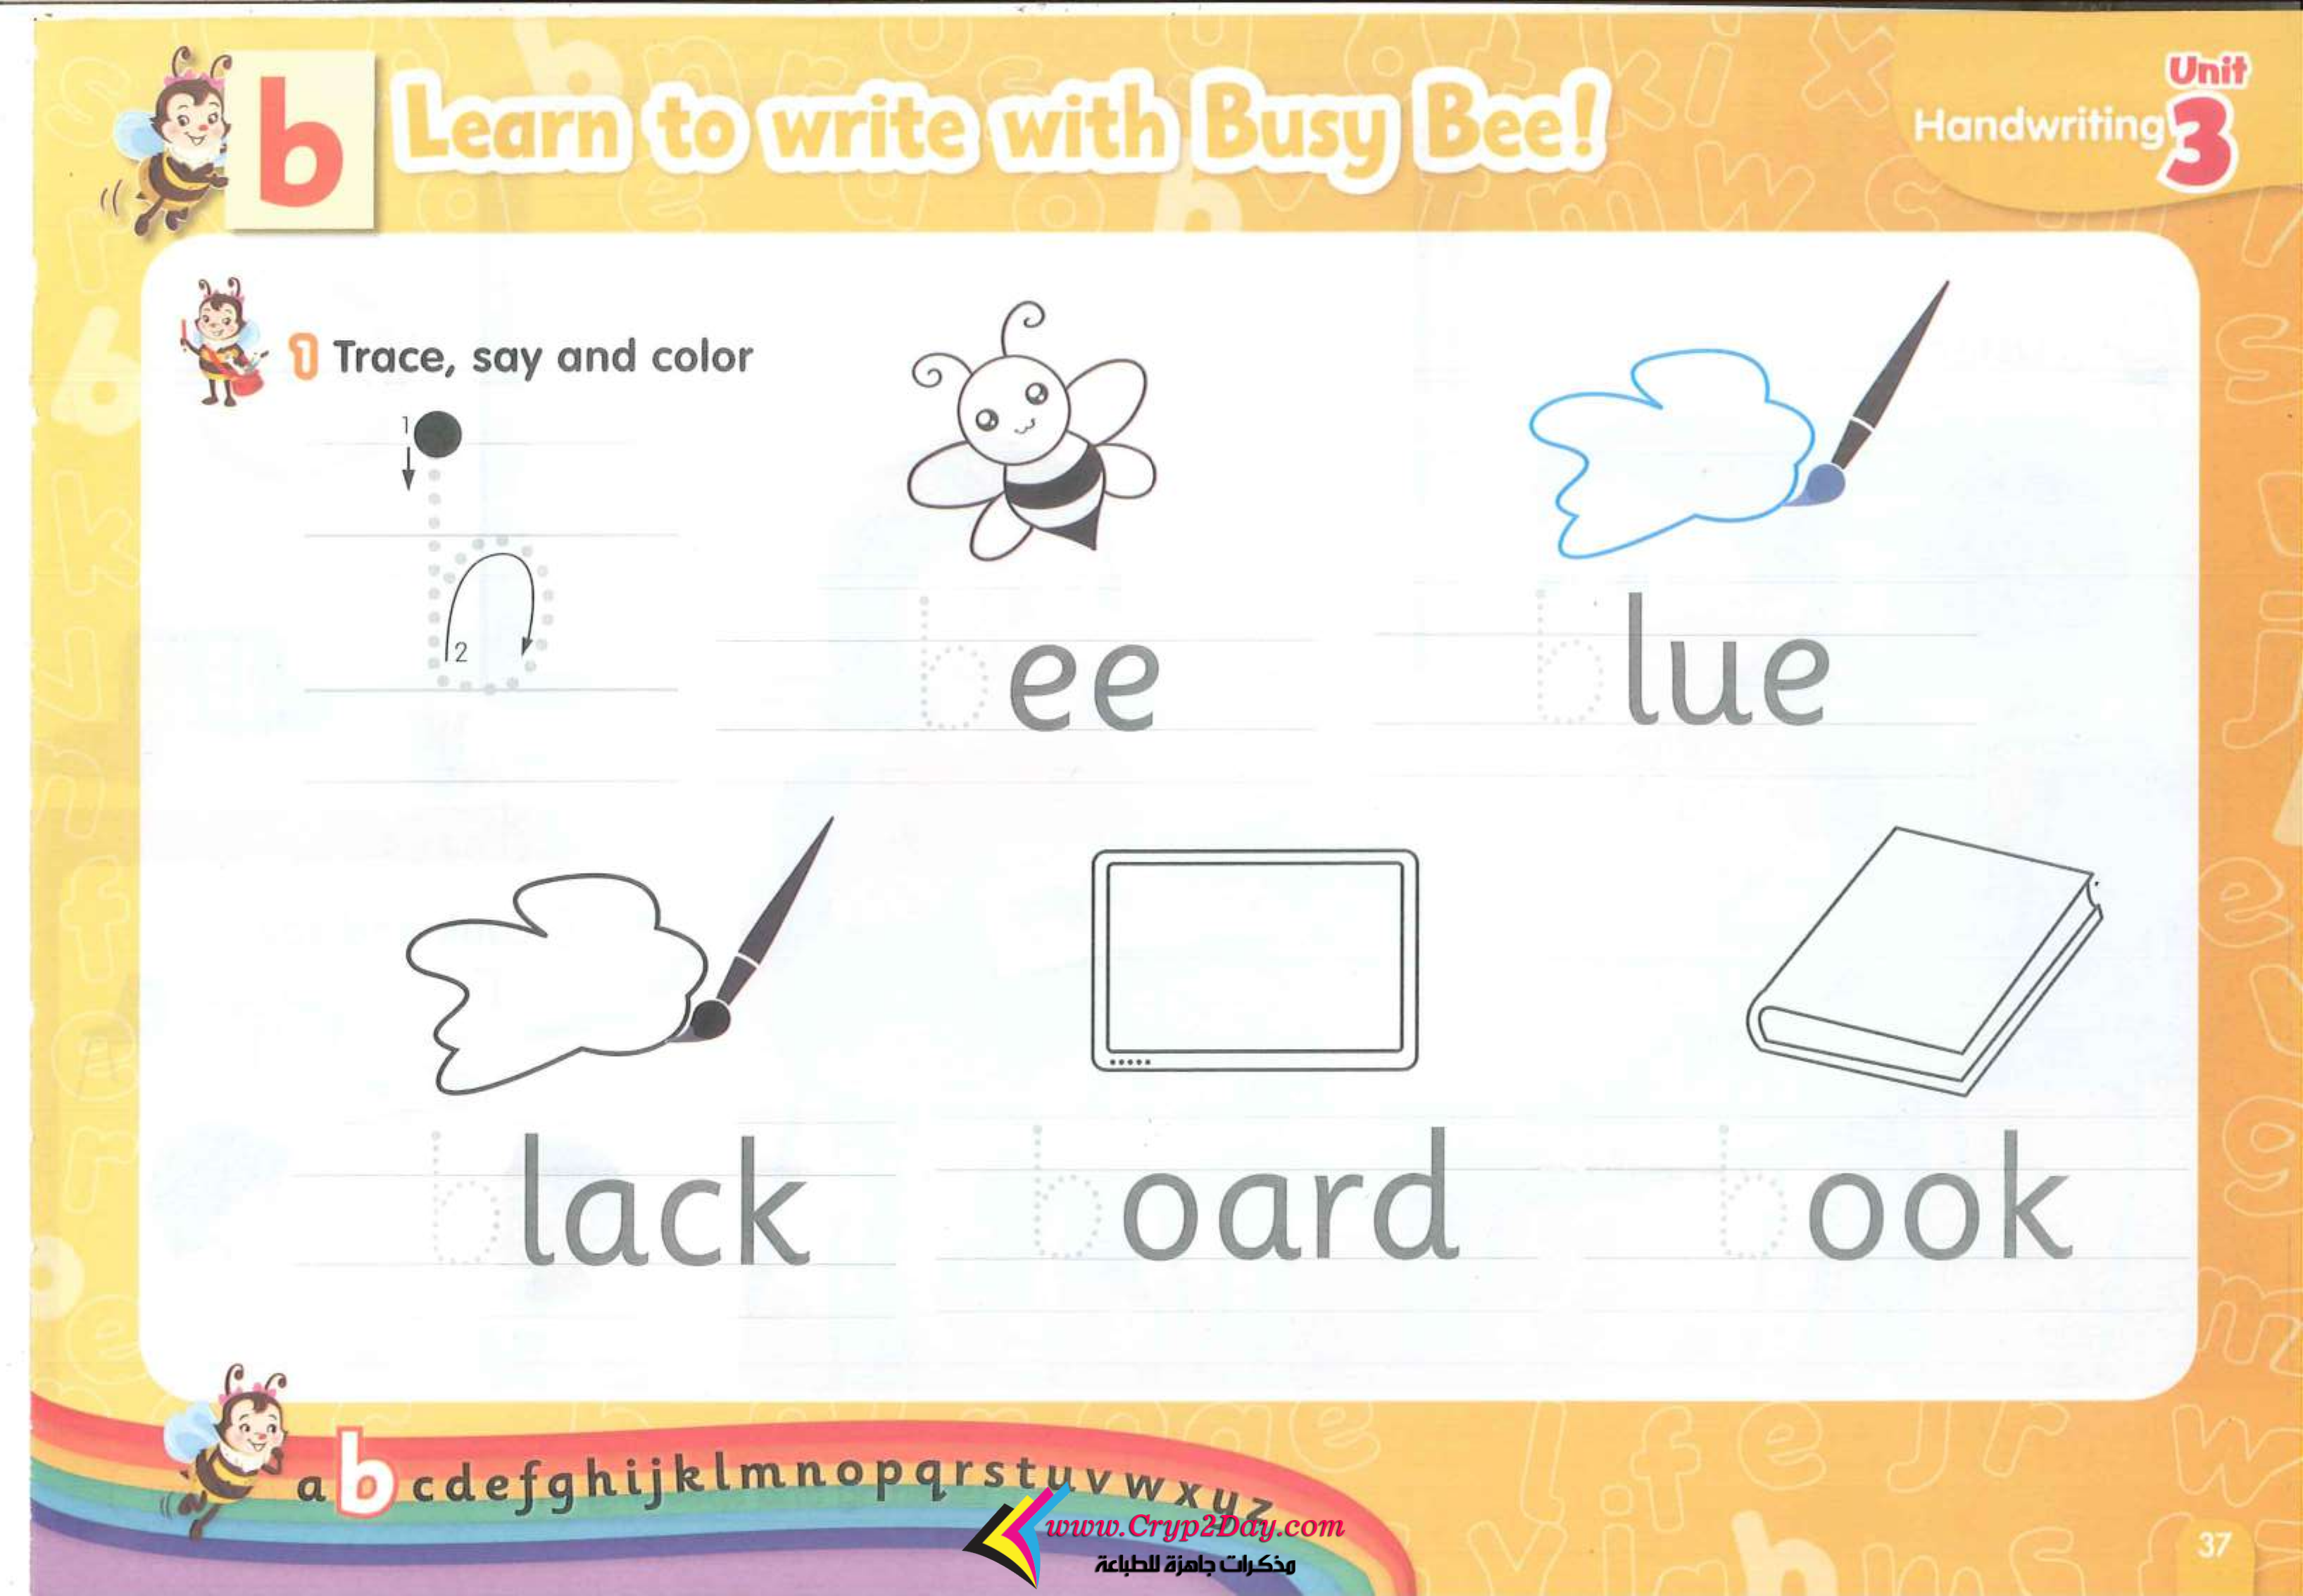 b Learn to write with Busy Bee!
Handwriting
Unit
3
1 Trace, say and color
1
2
bee
blue
black
board
book
a b c d e f g h i j k l m n o p q r s t u v w x y z
www.Cryp2Day.com
مذكرات جاهزة للطباعة
37